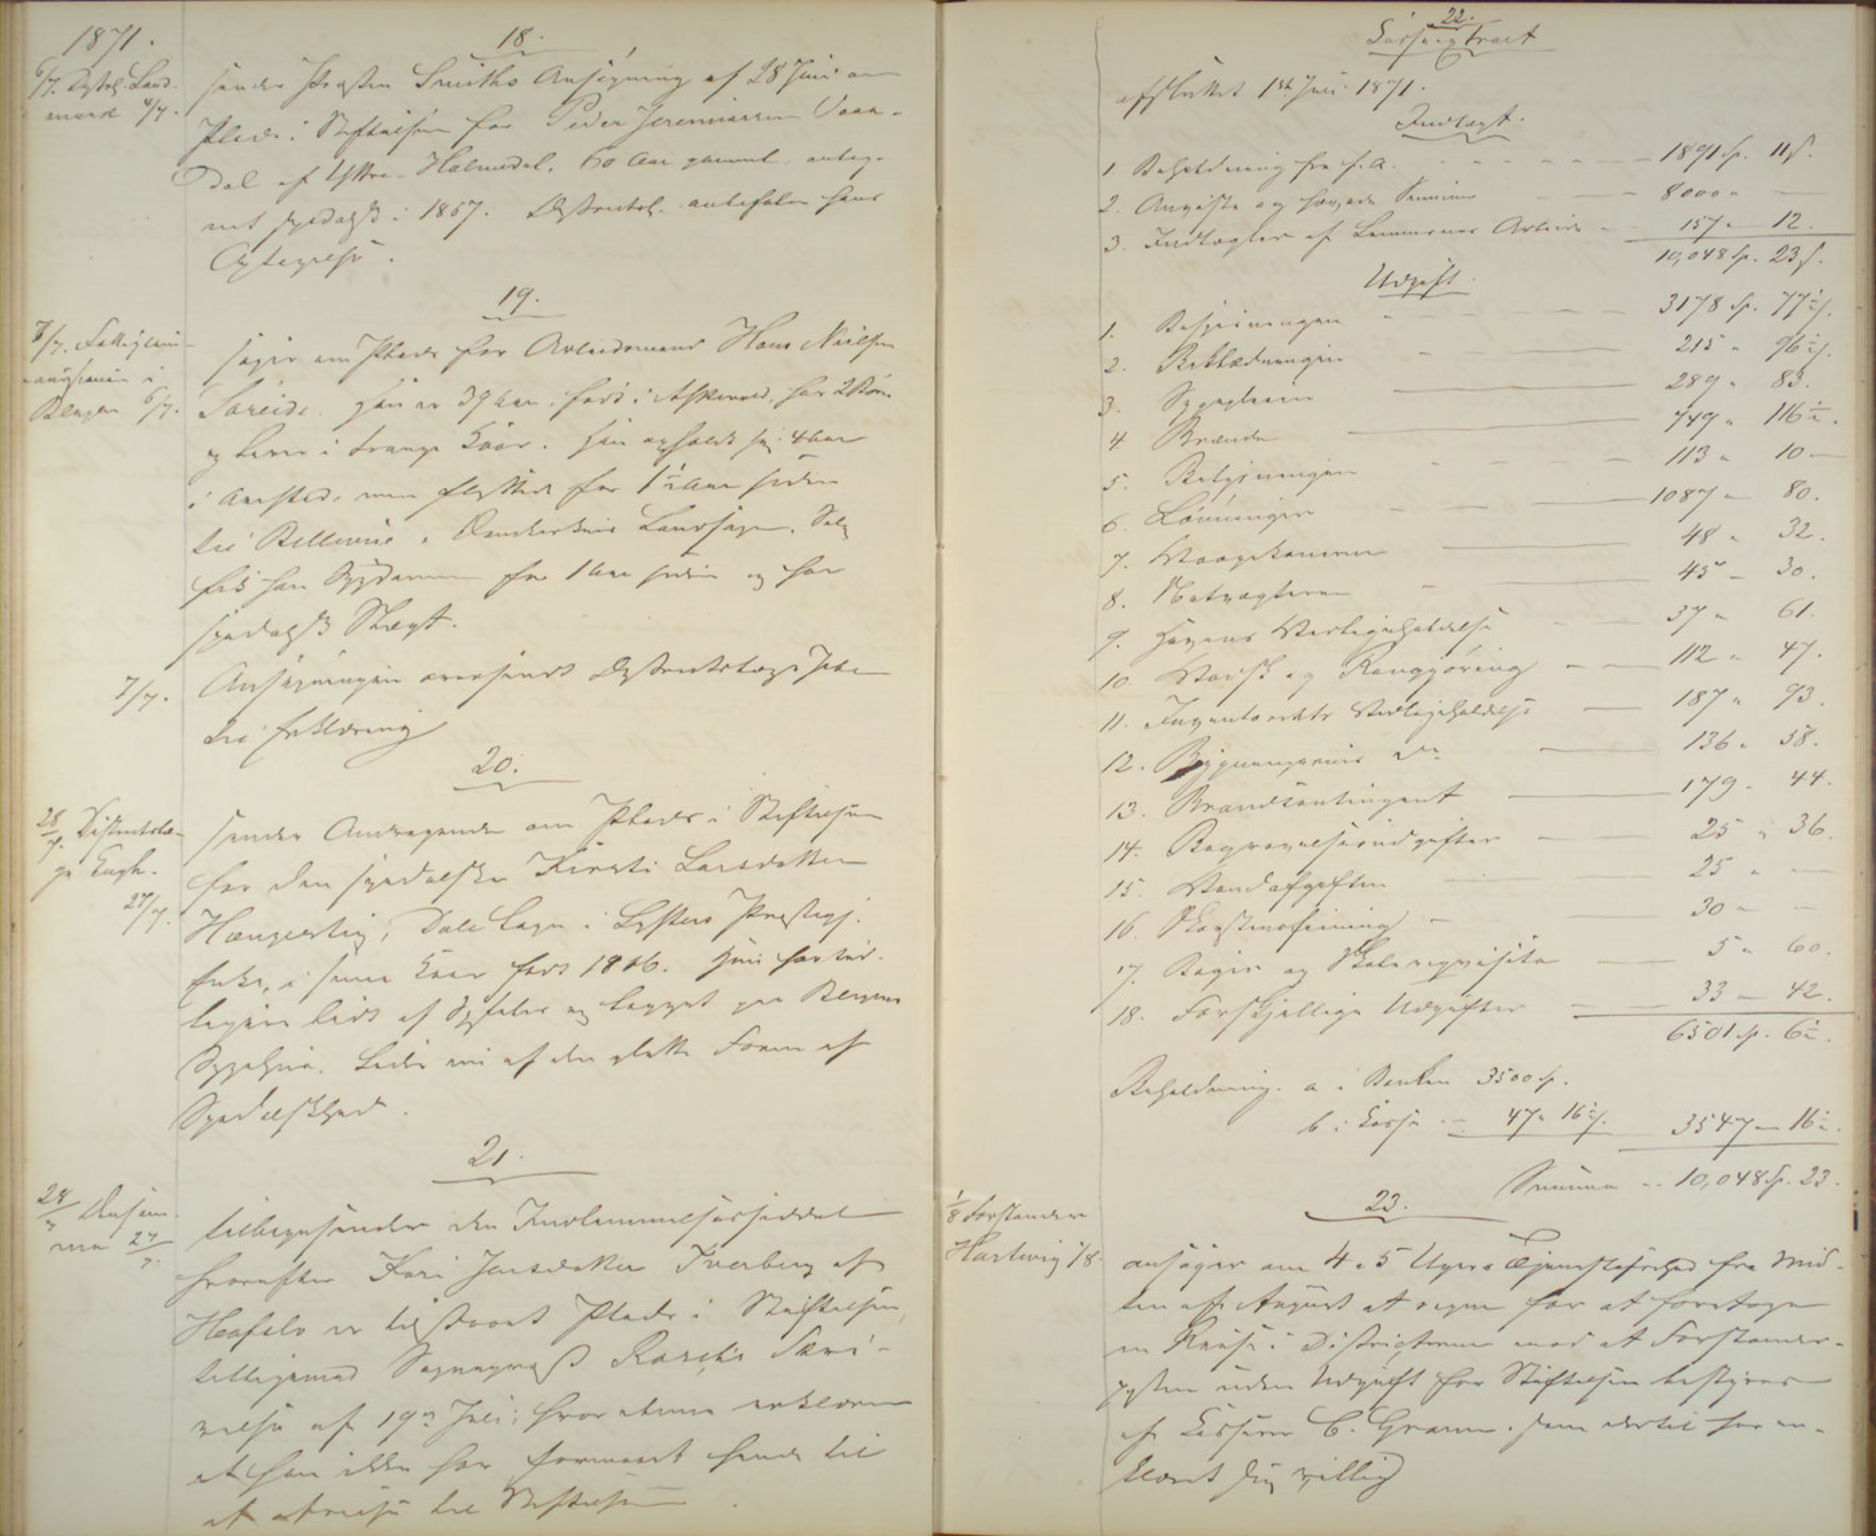 1871.
18.
6/7. Distrl. Land-
mark 4/7.
sender Presten Smiths Ansøgning af 28 Juni om
Plads i Stiftelsen for Peder Jeremiassen Vaar-
dal af Yttre-Holmedal, 60 Aar gammel, anteg-
net spedalsk i 1867. Distriktsl. anbefaler hans
Optagelse.
19.
8/7. Fattigcom-
missionen i
Bergen 6/7.
søger om Plads for Arbeidsmand Hans Nielsen
Søreide. Han er 39 Aar, født i Askevold, har 2 Børn
og lever i trange Kaar. Han opholdt sig 4 Aar
i Aarstad, men flyttede for 1½ Aar siden
til Bellevue i Domkirkens Landsogn. Selv
fik han Sygdommen for 1 Aar siden og har
spedalsk Slægt.
7/7.
Ansøgningen oversendt Distriktslæge
til Erklæring
20.
28/7. Distriktslæ-
ge Engh.
27/7.
sender Andragende om Plads i Stiftelsen
for den spedalske Kirsti Larsdatter
Dale Sogn i Lysters Præstegj.
Enke, i smaa Kaar født 1816. Hun har tid-
ligere lidt af og ligget paa Bergens
Sygehus. Lider nu af den glatte Form af
Spedalskhed.
21.
28/7 Densam-
me 27/7.
tilbagesender den Indlemmelsesseddel
hvorefter Kari Jensdatter Tverberg af
Hafslo er tilstaaet Plads i Stiftelsen,
tilligemed Sognepræst Skri-
velse af 19de Juli, hvor denne erklærer
at han ikke har formaaet hende til
at afreise til Stiftelsen.
22.
Cassaextract
afsluttet 1ste Juli 1871.
Indtægt.
1. Beholdning fra f.A. 1891 Sp. 11 s.
2. Anviste og hævede Summer 8000 " —
3. Indtægter af Lemmernes Arbeide 157 " 12.
10,048 Sp. 23 s.
Udgift.
1. Bespiisningen 3178 Sp. 77½ s.
2. Beklædningen 215 " 96½ s.
3. Sygepleien 289 " 83.
4. Brænde 749 " 116½.
5. Belysningen 113 " 10 —
6. Lønninger 1087 " 80.
7. Vaagekonerne 48 " 32.
8. Natvægteren 45 — 30.
9. Havens Vedligeholdelse 37 " 61.
10. Vadsk og Rengjøring 112 " 47.
11. Inventariets Vedligeholdelse 187 " 93.
12. Bygningernes do 136 " 58.
13. Brandcontingent 179 " 44.
14. Begravelsesudgifter 25 " 36.
15. Vandafgiften 25 " —
16. Skorstensfeining 30 " —
17. Bøger og Skolerequisita 5 " 60.
18. Forskjellige Udgifter 33 — 42.
6501 Sp. 6½.
Beholdning. a i Banken 3500 Sp.
b i Cassa 47 " 16½ s. 3547 — 16½.
Summa 10,048 Sp. 23.
23.
1/8 Forstander
Hartwig 1/8.
ansøger om 4 a 5 Ugers Tjenestefrihed fra Mid-
ten af August at regne for at foretage
en Reise i Districterne mod at Forstander-
posten uden Udgift for Stiftelsen bestyres
af Cassereren C. Gramm, som dertil har er-
klæret sig villig